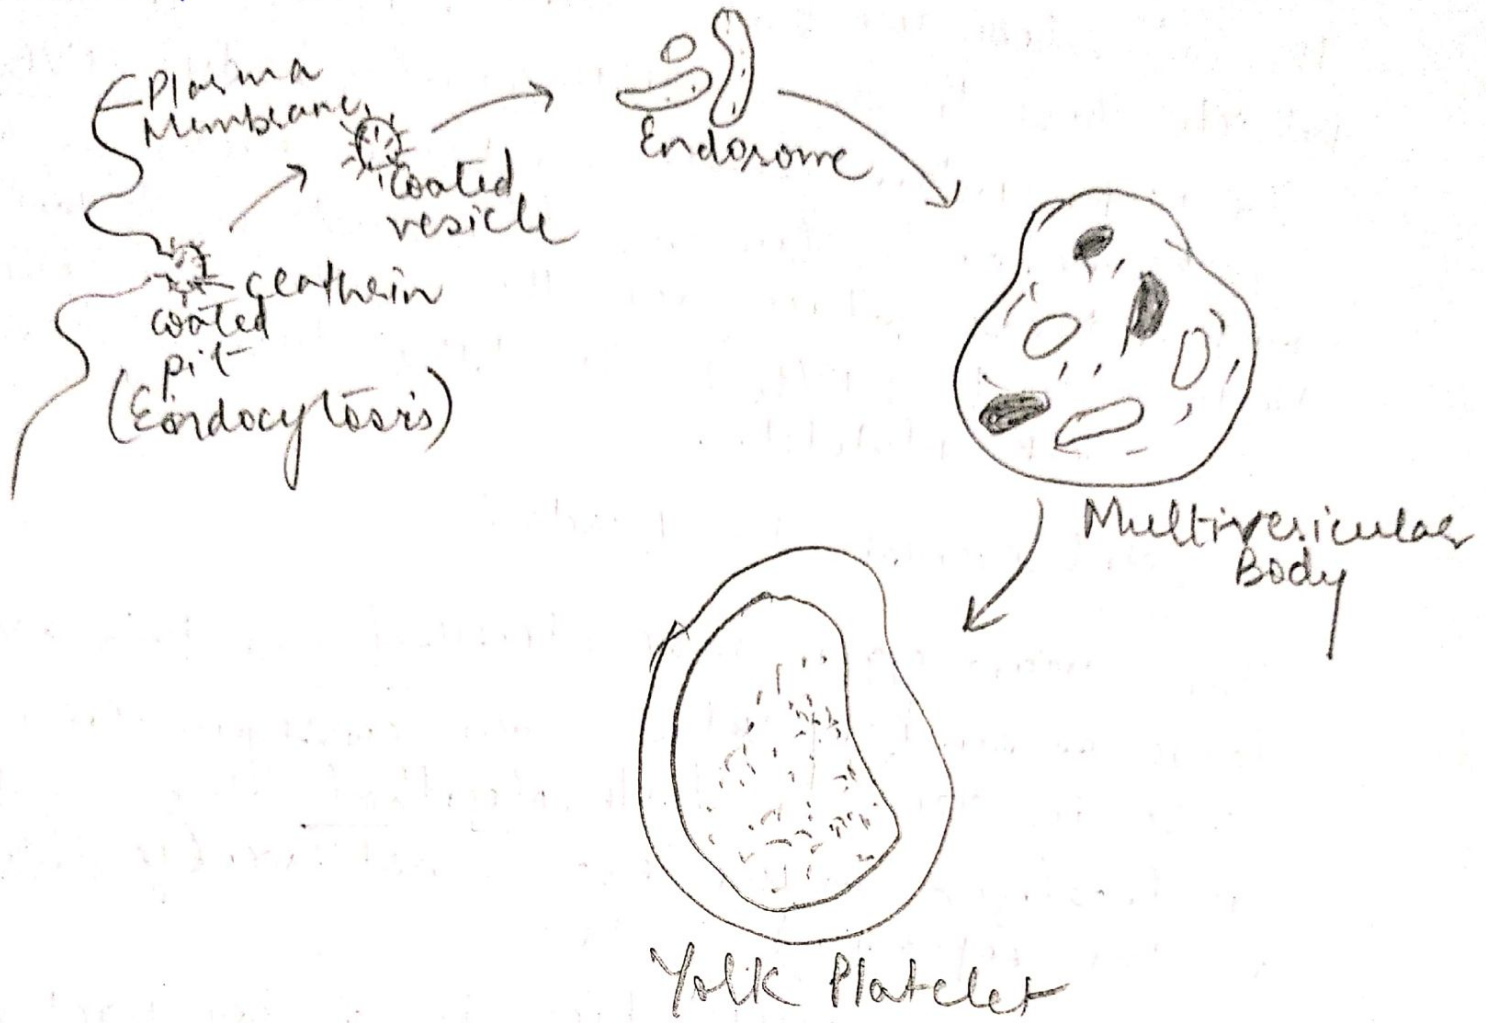 Plasma
Membrane
coated
vesicle
clathrin
coated
pit
(Endocytosis)
Endosome
Multivesicular
Body
Yolk Platelet